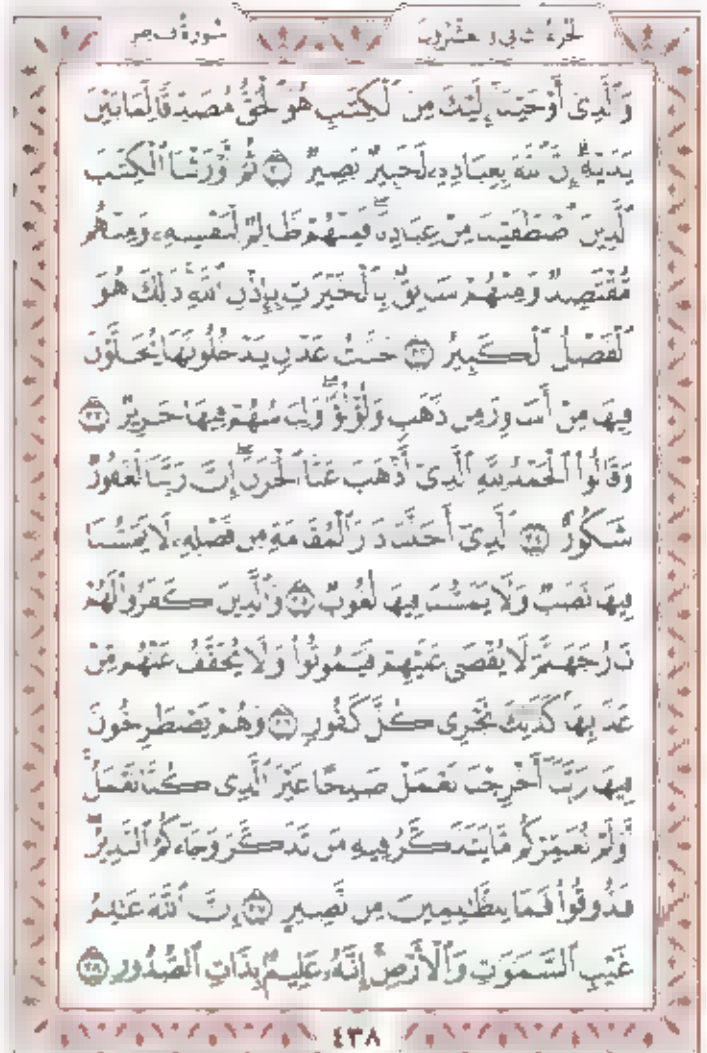 سورة فاطر الجزء الثاني والعشرون
وَٱلَّذِىٓ أَوْحَيْنَآ إِلَيْكَ مِنَ ٱلْكِتَٰبِ هُوَ ٱلْحَقُّ مُصَدِّقًا لِّمَا بَيْنَ
يَدَيْهِ إِنَّ ٱللَّهَ بِعِبَادِهِۦ لَخَبِيرٌۢ بَصِيرٌ ٣١ ثُمَّ أَوْرَثْنَا ٱلْكِتَٰبَ
ٱلَّذِينَ ٱصْطَفَيْنَا مِنْ عِبَادِنَا فَمِنْهُمْ ظَالِمٌ لِّنَفْسِهِۦ وَمِنْهُم
مُّقْتَصِدٌ وَمِنْهُمْ سَابِقٌۢ بِٱلْخَيْرَٰتِ بِإِذْنِ ٱللَّهِ ذَٰلِكَ هُوَ
ٱلْفَضْلُ ٱلْكَبِيرُ ٣٢ جَنَّٰتُ عَدْنٍ يَدْخُلُونَهَا يُحَلَّوْنَ
فِيهَا مِنْ أَسَاوِرَ مِن ذَهَبٍ وَلُؤْلُؤًا وَلِبَاسُهُمْ فِيهَا حَرِيرٌ ٣٣
وَقَالُوا۟ ٱلْحَمْدُ لِلَّهِ ٱلَّذِىٓ أَذْهَبَ عَنَّا ٱلْحَزَنَ إِنَّ رَبَّنَا لَغَفُورٌ
شَكُورٌ ٣٤ ٱلَّذِىٓ أَحَلَّنَا دَارَ ٱلْمُقَامَةِ مِن فَضْلِهِۦ لَا يَمَسُّنَا
فِيهَا نَصَبٌ وَلَا يَمَسُّنَا فِيهَا لُغُوبٌ ٣٥ وَٱلَّذِينَ كَفَرُوا۟ لَهُمْ
نَارُ جَهَنَّمَ لَا يُقْضَىٰ عَلَيْهِمْ فَيَمُوتُوا۟ وَلَا يُخَفَّفُ عَنْهُم مِّنْ
عَذَابِهَا كَذَٰلِكَ نَجْزِى كُلَّ كَفُورٍ ٣٦ وَهُمْ يَصْطَرِخُونَ
فِيهَا رَبَّنَآ أَخْرِجْنَا نَعْمَلْ صَٰلِحًا غَيْرَ ٱلَّذِى كُنَّا نَعْمَلُ
أَوَلَمْ نُعَمِّرْكُم مَّا يَتَذَكَّرُ فِيهِ مَن تَذَكَّرَ وَجَآءَكُمُ ٱلنَّذِيرُ
فَذُوقُوا۟ فَمَا لِلظَّٰلِمِينَ مِن نَّصِيرٍ ٣٧ إِنَّ ٱللَّهَ عَٰلِمُ
غَيْبِ ٱلسَّمَٰوَٰتِ وَٱلْأَرْضِ إِنَّهُۥ عَلِيمٌۢ بِذَاتِ ٱلصُّدُورِ ٣٨
٤٣٨